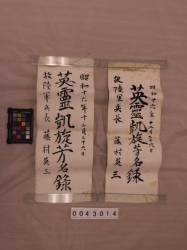 昭和十六年十二月二十六日
英霊凱旋芳名録
故陸軍兵長 藤村英三
昭和十六年十二月二十六日
英霊凱旋芳名録
故陸軍兵長 藤村英三
0043014